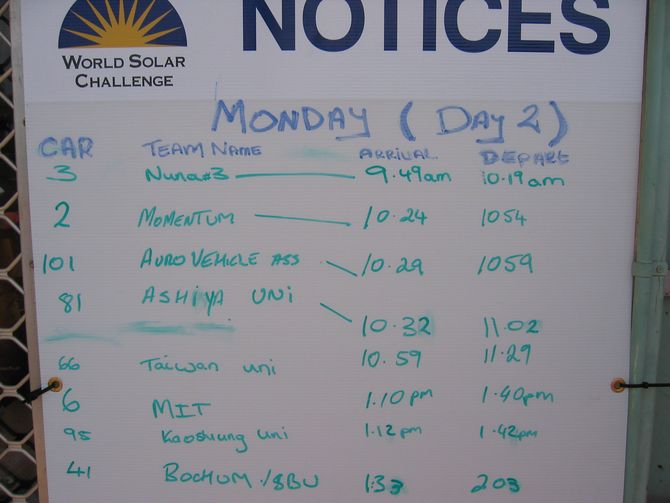 NOTICES
WORLD SOLAR
CHALLENGE
MONDAY (DAY 2)
CAR TEAM NAME ARRIVAL DEPART
3 Nuna#3 9.49am 10.19am
2 MOMENTUM 10.24 1054
101 AURO VEHICLE ASS 10.29 1059
81 ASHIYA UNI 10.32 11.02
66 Taiwan uni 10.59 11.29
6 MIT 1.10pm 1.40pm
95 Kaoshiung uni 1.12pm 1.42pm
41 BOCHUM /SBU 1.33 2.03